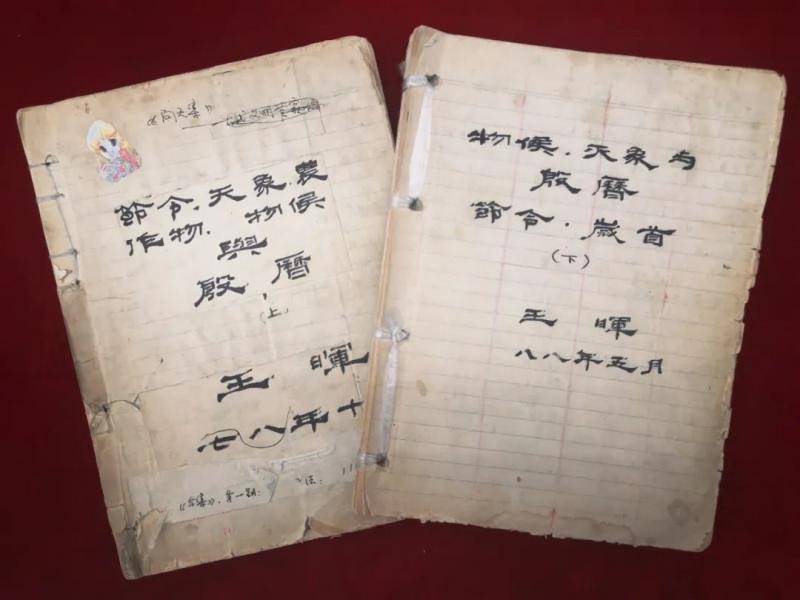 節令.天象.農
作物.物候
與
殷曆
(上)
王暉
七八年十
《合集》,第一期:
法:
物候.天象与
殷曆
節令.歲首
(下)
王暉
八八年五月